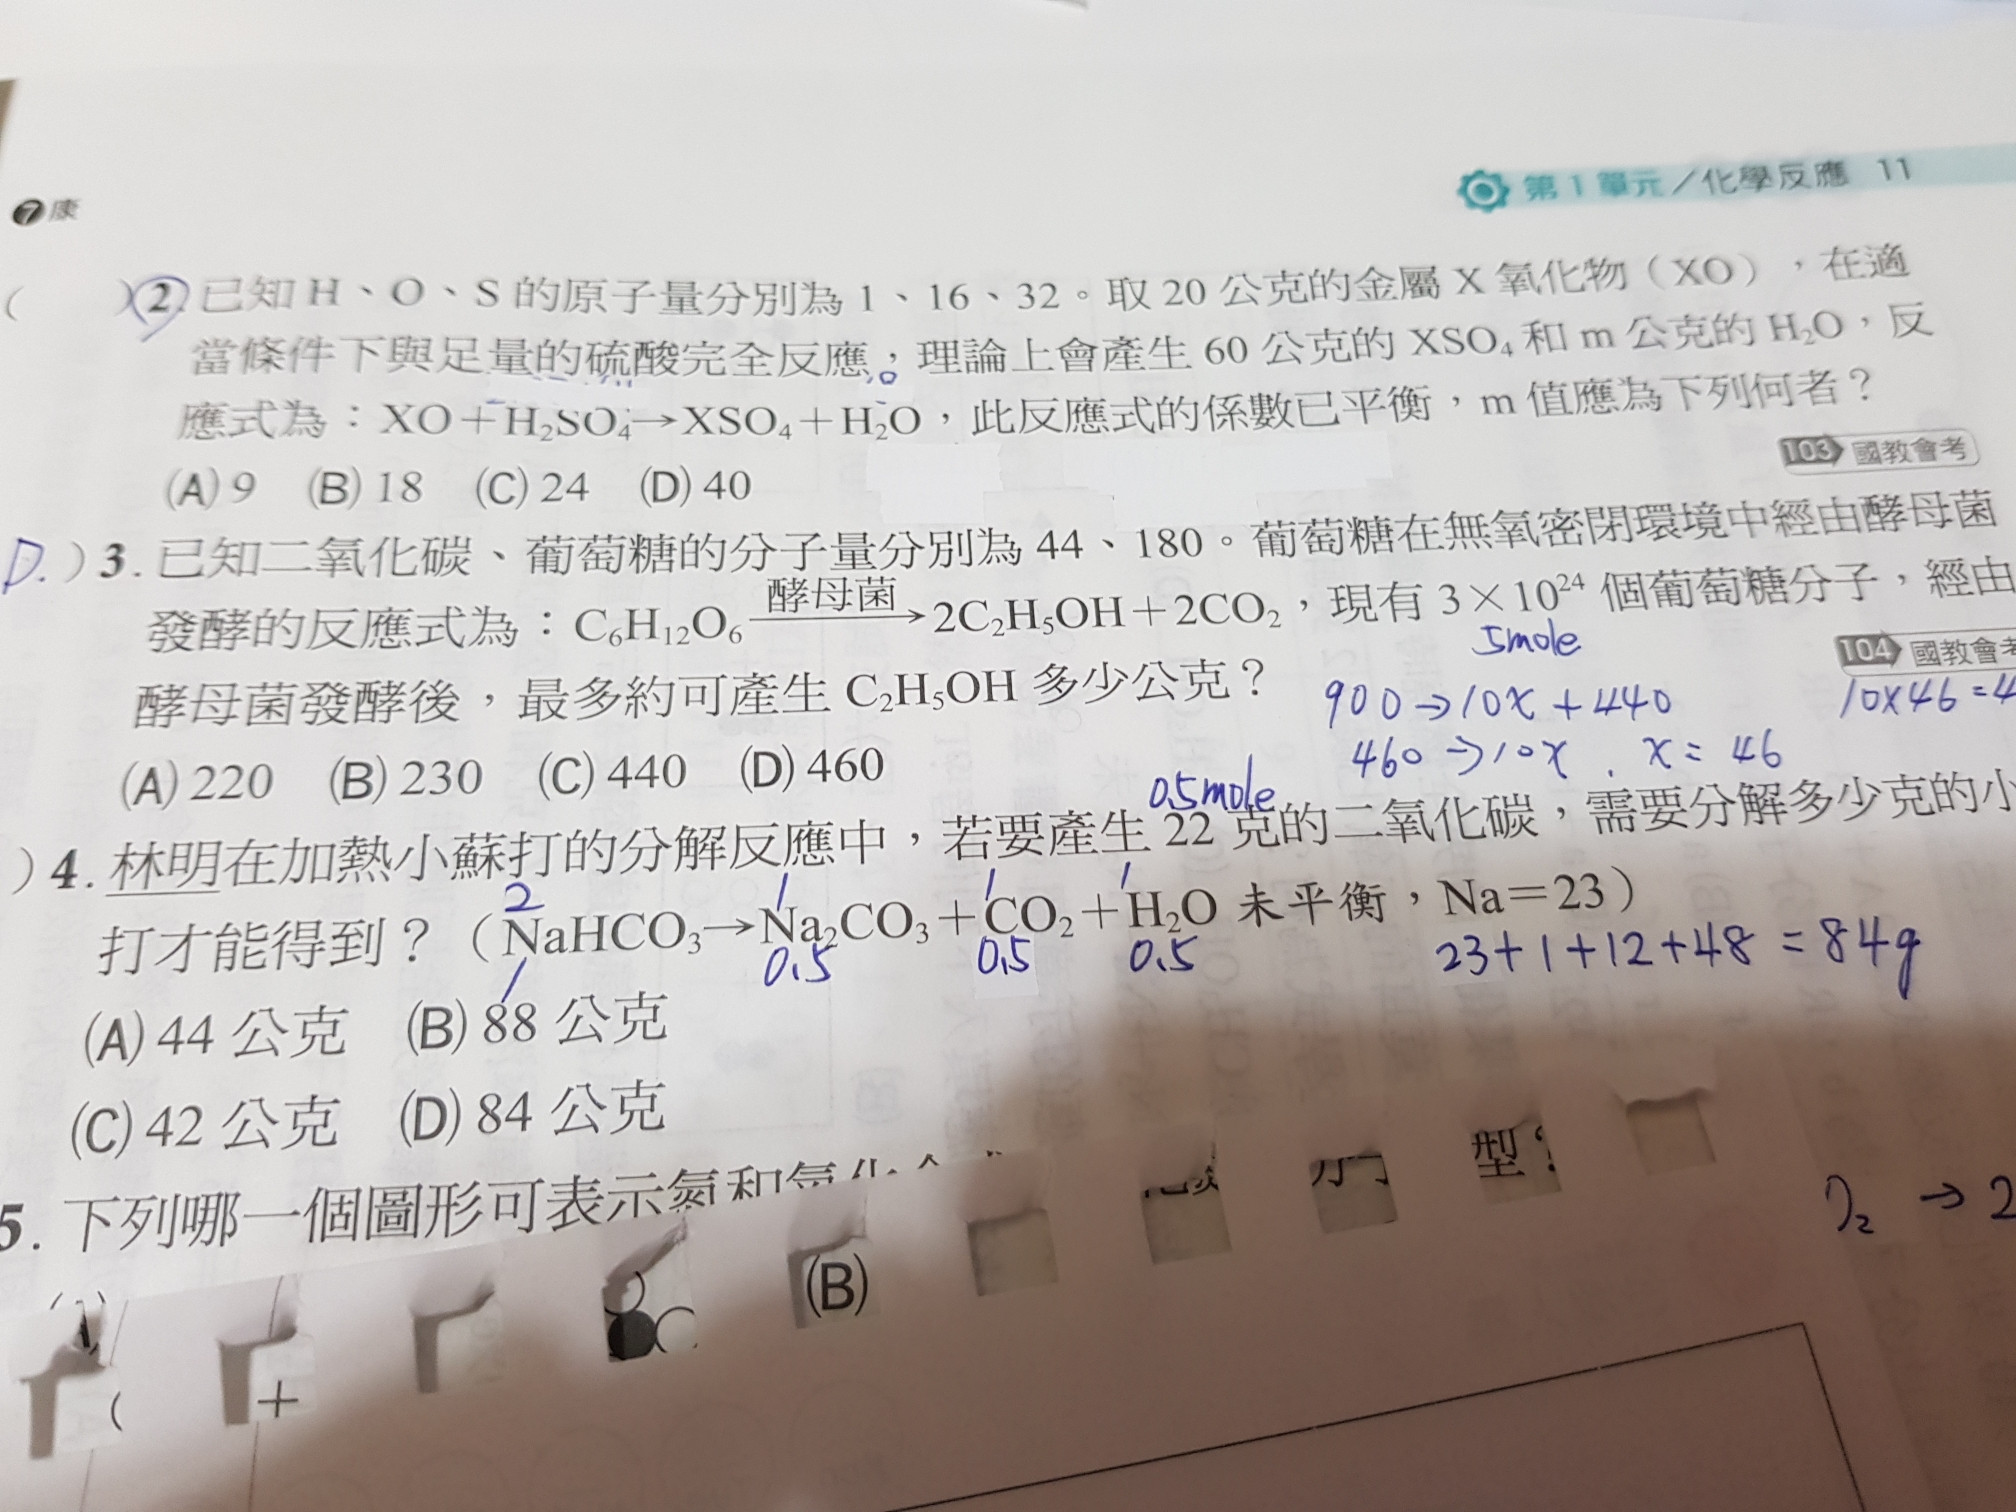 7康
第1單元/化學反應 11
( )2.已知H、O、S的原子量分別為1、16、32。取20公克的金屬X氧化物(XO),在適
當條件下與足量的硫酸完全反應;理論上會產生60公克的XSO₄和m公克的H₂O,反
應式為:XO+H₂SO₄→XSO₄+H₂O,此反應式的係數已平衡,m值應為下列何者?
103 國教會考
(A)9 (B)18 (C)24 (D)40
D.)3.已知二氧化碳、葡萄糖的分子量分別為44、180。葡萄糖在無氧密閉環境中經由酵母菌
發酵的反應式為:C₆H₁₂O₆ 酵母菌→2C₂H₅OH+2CO₂,現有3×10²⁴個葡萄糖分子,經由
5mole
104 國教會考
酵母菌發酵後,最多約可產生C₂H₅OH多少公克?
900→10x+440
10x46=4
460→10x. x=46
(A)220 (B)230 (C)440 (D)460
0.5mole
)4.林明在加熱小蘇打的分解反應中,若要產生22克的二氧化碳,需要分解多少克的小
2 1 1 1
打才能得到?(NaHCO₃→Na₂CO₃+CO₂+H₂O未平衡,Na=23)
1 0.5 0.5 0.5
23+1+12+48=84g
(A)44公克 (B)88公克
(C)42公克 (D)84公克
5.下列哪一個圖形可表示氮和氫化合
型?
₂ → 2
(B)
+